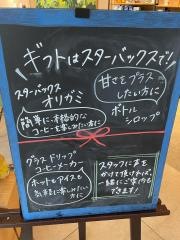 ギフトはスターバックスで!
スターバックス
オリガミ
簡単に本格的な
コーヒーを楽しみたい方に
甘さをプラス
したい方に
ボトル
シロップ
グラスドリップ
コーヒーメーカー
ホットもアイスも
気軽に楽しみたい
方に
スタッフに声を
かけて頂ければ、
一緒にご案内
できます!